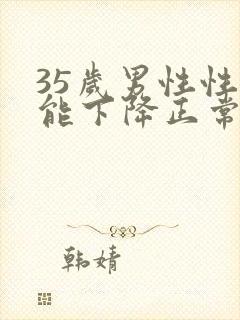 35岁男性性
能下降正常
韩婧